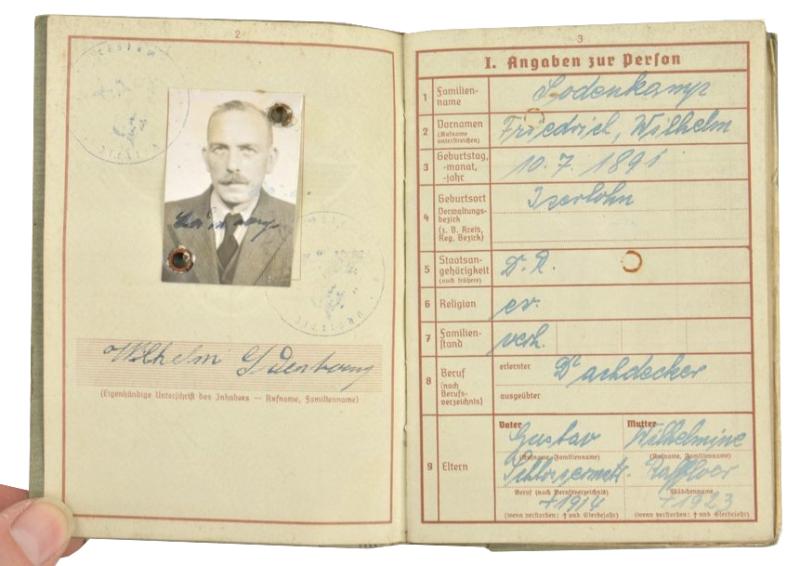 2
Wilhelm
(Eigenhändige Unterschrift des Inhabers — Rufname, Familienname)
3
I. Angaben zur Person
1 Familien-
name
Lodenkamp
2 Vornamen
(Rufname
unterstreichen)
Friedrich, Wilhelm
3 Geburtstag,
-monat,
-jahr
10.7.1891
4 Geburtsort
Verwaltungs-
bezirk
(z. B. Kreis,
Reg. Bezirk)
Iserlohn
5 Staatsan-
gehörigkeit
(auch frühere)
D. R.
6 Religion
ev.
7 Familien-
stand
verh.
8 Beruf
(nach
Berufs-
verzeichnis)
erlernter
Dachdecker
ausgeübter
9 Eltern
Vater
Gustav
(Rufname, Familienname)
Beruf (nach Berufsverzeichnis)
†1914
(wenn verstorben: † und Sterbejahr)
Mutter
Wilhelmine
(Rufname, Familienname)
Mädchenname
†1923
(wenn verstorben: † und Sterbejahr)